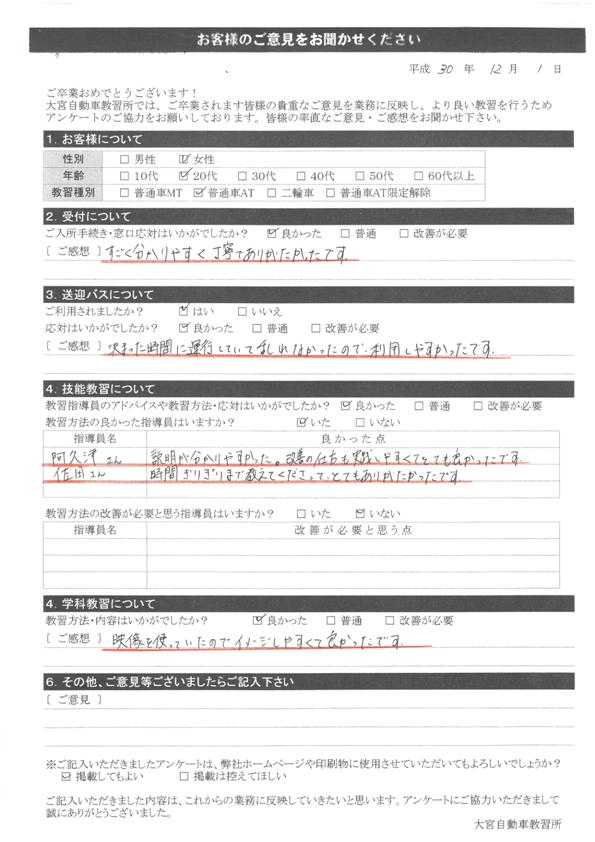 お客様のご意見をお聞かせください
平成 30 年 12 月 1 日
ご卒業おめでとうございます！
大宮自動車教習所では、ご卒業されます皆様の貴重なご意見を業務に反映し、より良い教習を行うため
アンケートのご協力をお願いしております。皆様の率直なご意見・ご感想をお聞かせ下さい。
1．お客様について
性別 □ 男性 ☑ 女性
年齢 □ 10代 ☑ 20代 □ 30代 □ 40代 □ 50代 □ 60代以上
教習種別 □ 普通車MT ☑ 普通車AT □ 二輪車 □ 普通車AT限定解除
2．受付について
ご入所手続き・窓口応対はいかがでしたか？ ☑ 良かった □ 普通 □ 改善が必要
[ ご感想 ] すごく分かりやすく丁寧でありがたかったです。
3．送迎バスについて
ご利用されましたか？ ☑ はい □ いいえ
応対はいかがでしたか？ ☑ 良かった □ 普通 □ 改善が必要
[ ご感想 ] 決まった時間に運行していて乱れなかったので利用しやすかったです。
4．技能教習について
教習指導員のアドバイスや教習方法・応対はいかがでしたか？ ☑ 良かった □ 普通 □ 改善が必要
教習方法の良かった指導員はいますか？ ☑ いた □ いない
指導員名 良かった点
阿久津さん 説明が分かりやすかった。改善の仕方も実践しやすくてとても良かったです。
佐田さん 時間ぎりぎりまで教えてくださって、とてもありがたかったです。
教習方法の改善が必要と思う指導員はいますか？ □ いた ☑ いない
指導員名 改善が必要と思う点
4．学科教習について
教習方法・内容はいかがでしたか？ ☑ 良かった □ 普通 □ 改善が必要
[ ご感想 ] 映像を使っていたのでイメージしやすくて良かったです。
6．その他、ご意見等ございましたらご記入下さい
[ ご意見 ]
※ご記入いただきましたアンケートは、弊社ホームページや印刷物に使用させていただいてもよろしいでしょうか？
☑ 掲載してもよい □ 掲載は控えてほしい
ご記入いただきました内容は、これからの業務に反映していきたいと思います。アンケートにご協力いただきまして
誠にありがとうございました。
大宮自動車教習所